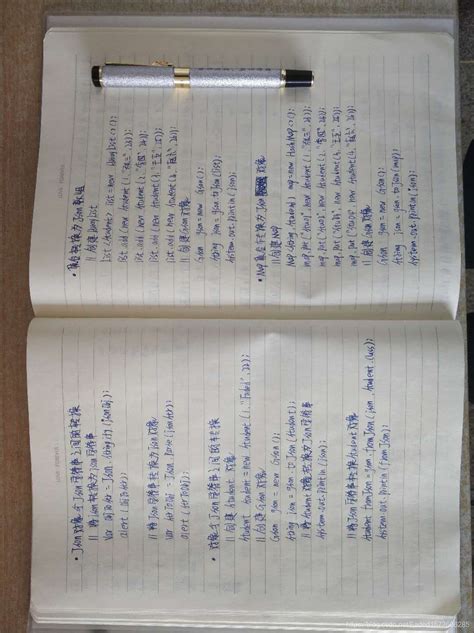 • Json对象与Json字符串之间的转换
// 将Json对象转换为Json字符串
Var objToStr = Json.stringify(jsonObj);
alert(objToStr);
// 将Json字符串转换为Json对象
Var strToObj = Json.parse(jsonStr);
alert(strToObj);
• 对象与Json字符串之间的转换
// 创建Student对象
Student student = new Student(1,"
// 创建Gson对象
Gson gson = new Gson();
String json = gson.toJson(student);
// 将Student对象转换为Json字符串
System.out.println(json);
// 将Json字符串转换为Student对象
Student fromJson = gson.fromJson(json, Student.class);
System.out.println(fromJson);
• 集合转换为Json数组
// 创建List
List<Student> list = new
list.add(new Student(1,"张三",
list.add(new Student(2,"李四",
list.add(new Student(3,"王五",
list.add(new Student(4,
// 创建Gson对象
Gson gson = new Gson();
String json = gson.toJson(list);
System.out.println(json);
• Map集合转换为Json对象
// 创建Map
Map<String, Student> map = new HashMap<>();
map.put("stu1", new Student(1,"张三",
map.put("stu2", new Student(2,"李四",
map.put("stu3", new Student(3,"王五",
map.put("stu4", new Student(4,
// 创建Gson对象
Gson gson = new Gson();
String json = gson.toJson(map);
System.out.println(json);